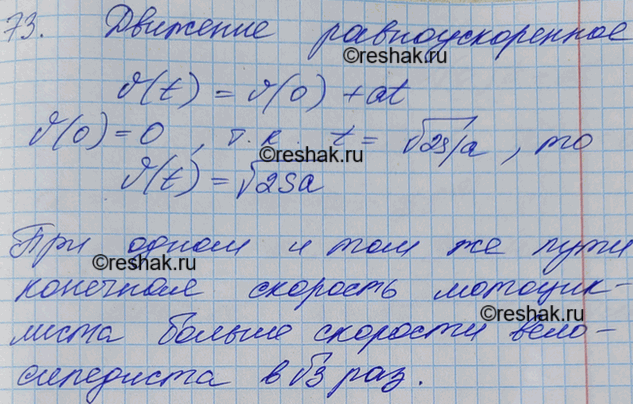 73. Движение равноускоренное
©reshak.ru
v(t) = v(0) + at
v(0) = 0 , т.к. t = √2s/a , то
©reshak.ru
v(t) = √2sa
При одном и том же пути
©reshak.ru
конечная скорость мотоцик-
©reshak.ru
листа больше скорости вело-
сипедиста в √3 раз.
©reshak.ru